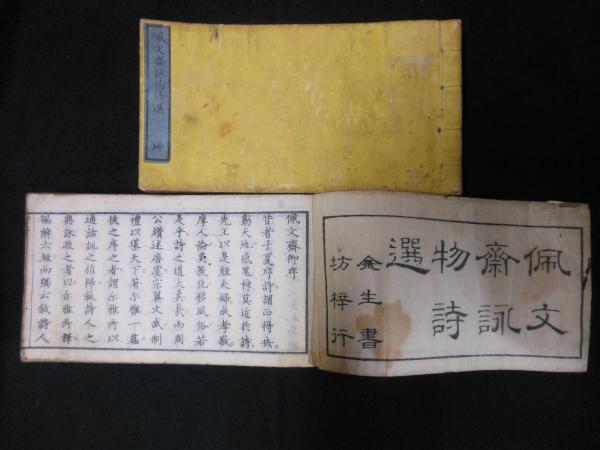 佩文齋詠物詩選
佩文
齋詠
物詩
選
金生書
坊梓行
佩文齋御序
昔者子夏序詩謂正得失
動天地感鬼神莫近於詩
先王以是經夫婦成孝敬
厚人倫美教化移風俗若
是乎詩之道大矣哉而周
公纘述唐虞宗翼文武制
禮以道天下著尔雅一篇
後之序之者謂尔雅所以
通詁訓之指歸敘詩人之
興詠疏之者曰尔雅所釋
徧解六經而獨云敘詩人